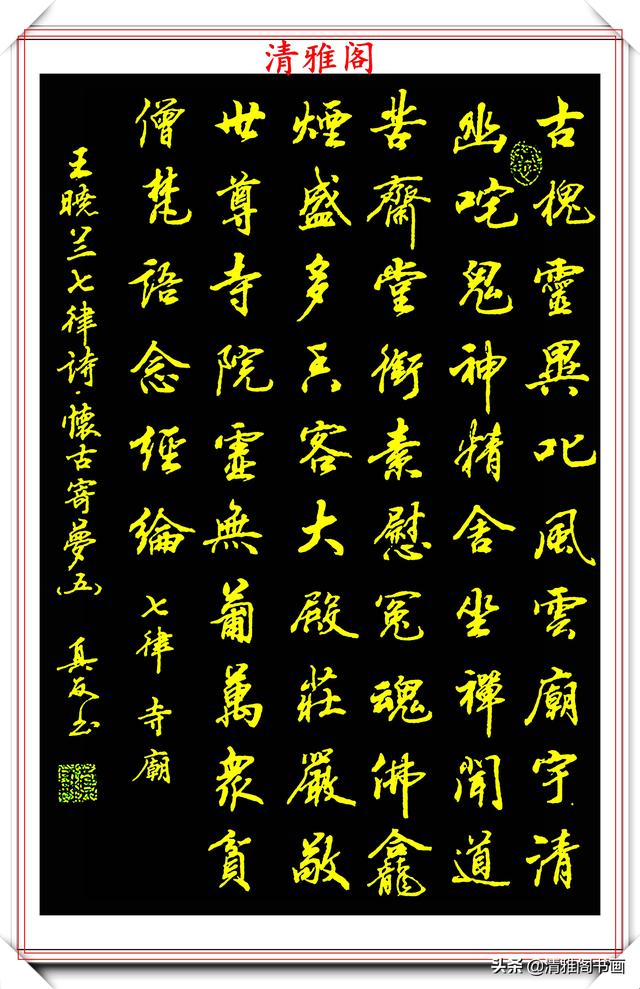 清雅阁
古槐靈異叱風雲廟宇清
幽咤鬼神精舍坐禪聞道
苦齋堂銜素慰冤魂佛龕
煙盛多香客大殿莊嚴敬
世尊寺院靈無蔔萬衆貪
僧梵語念經綸 七律 寺廟
王曉兰七律詩·懷古寄夢(五) 真友书
头条@清雅阁书画